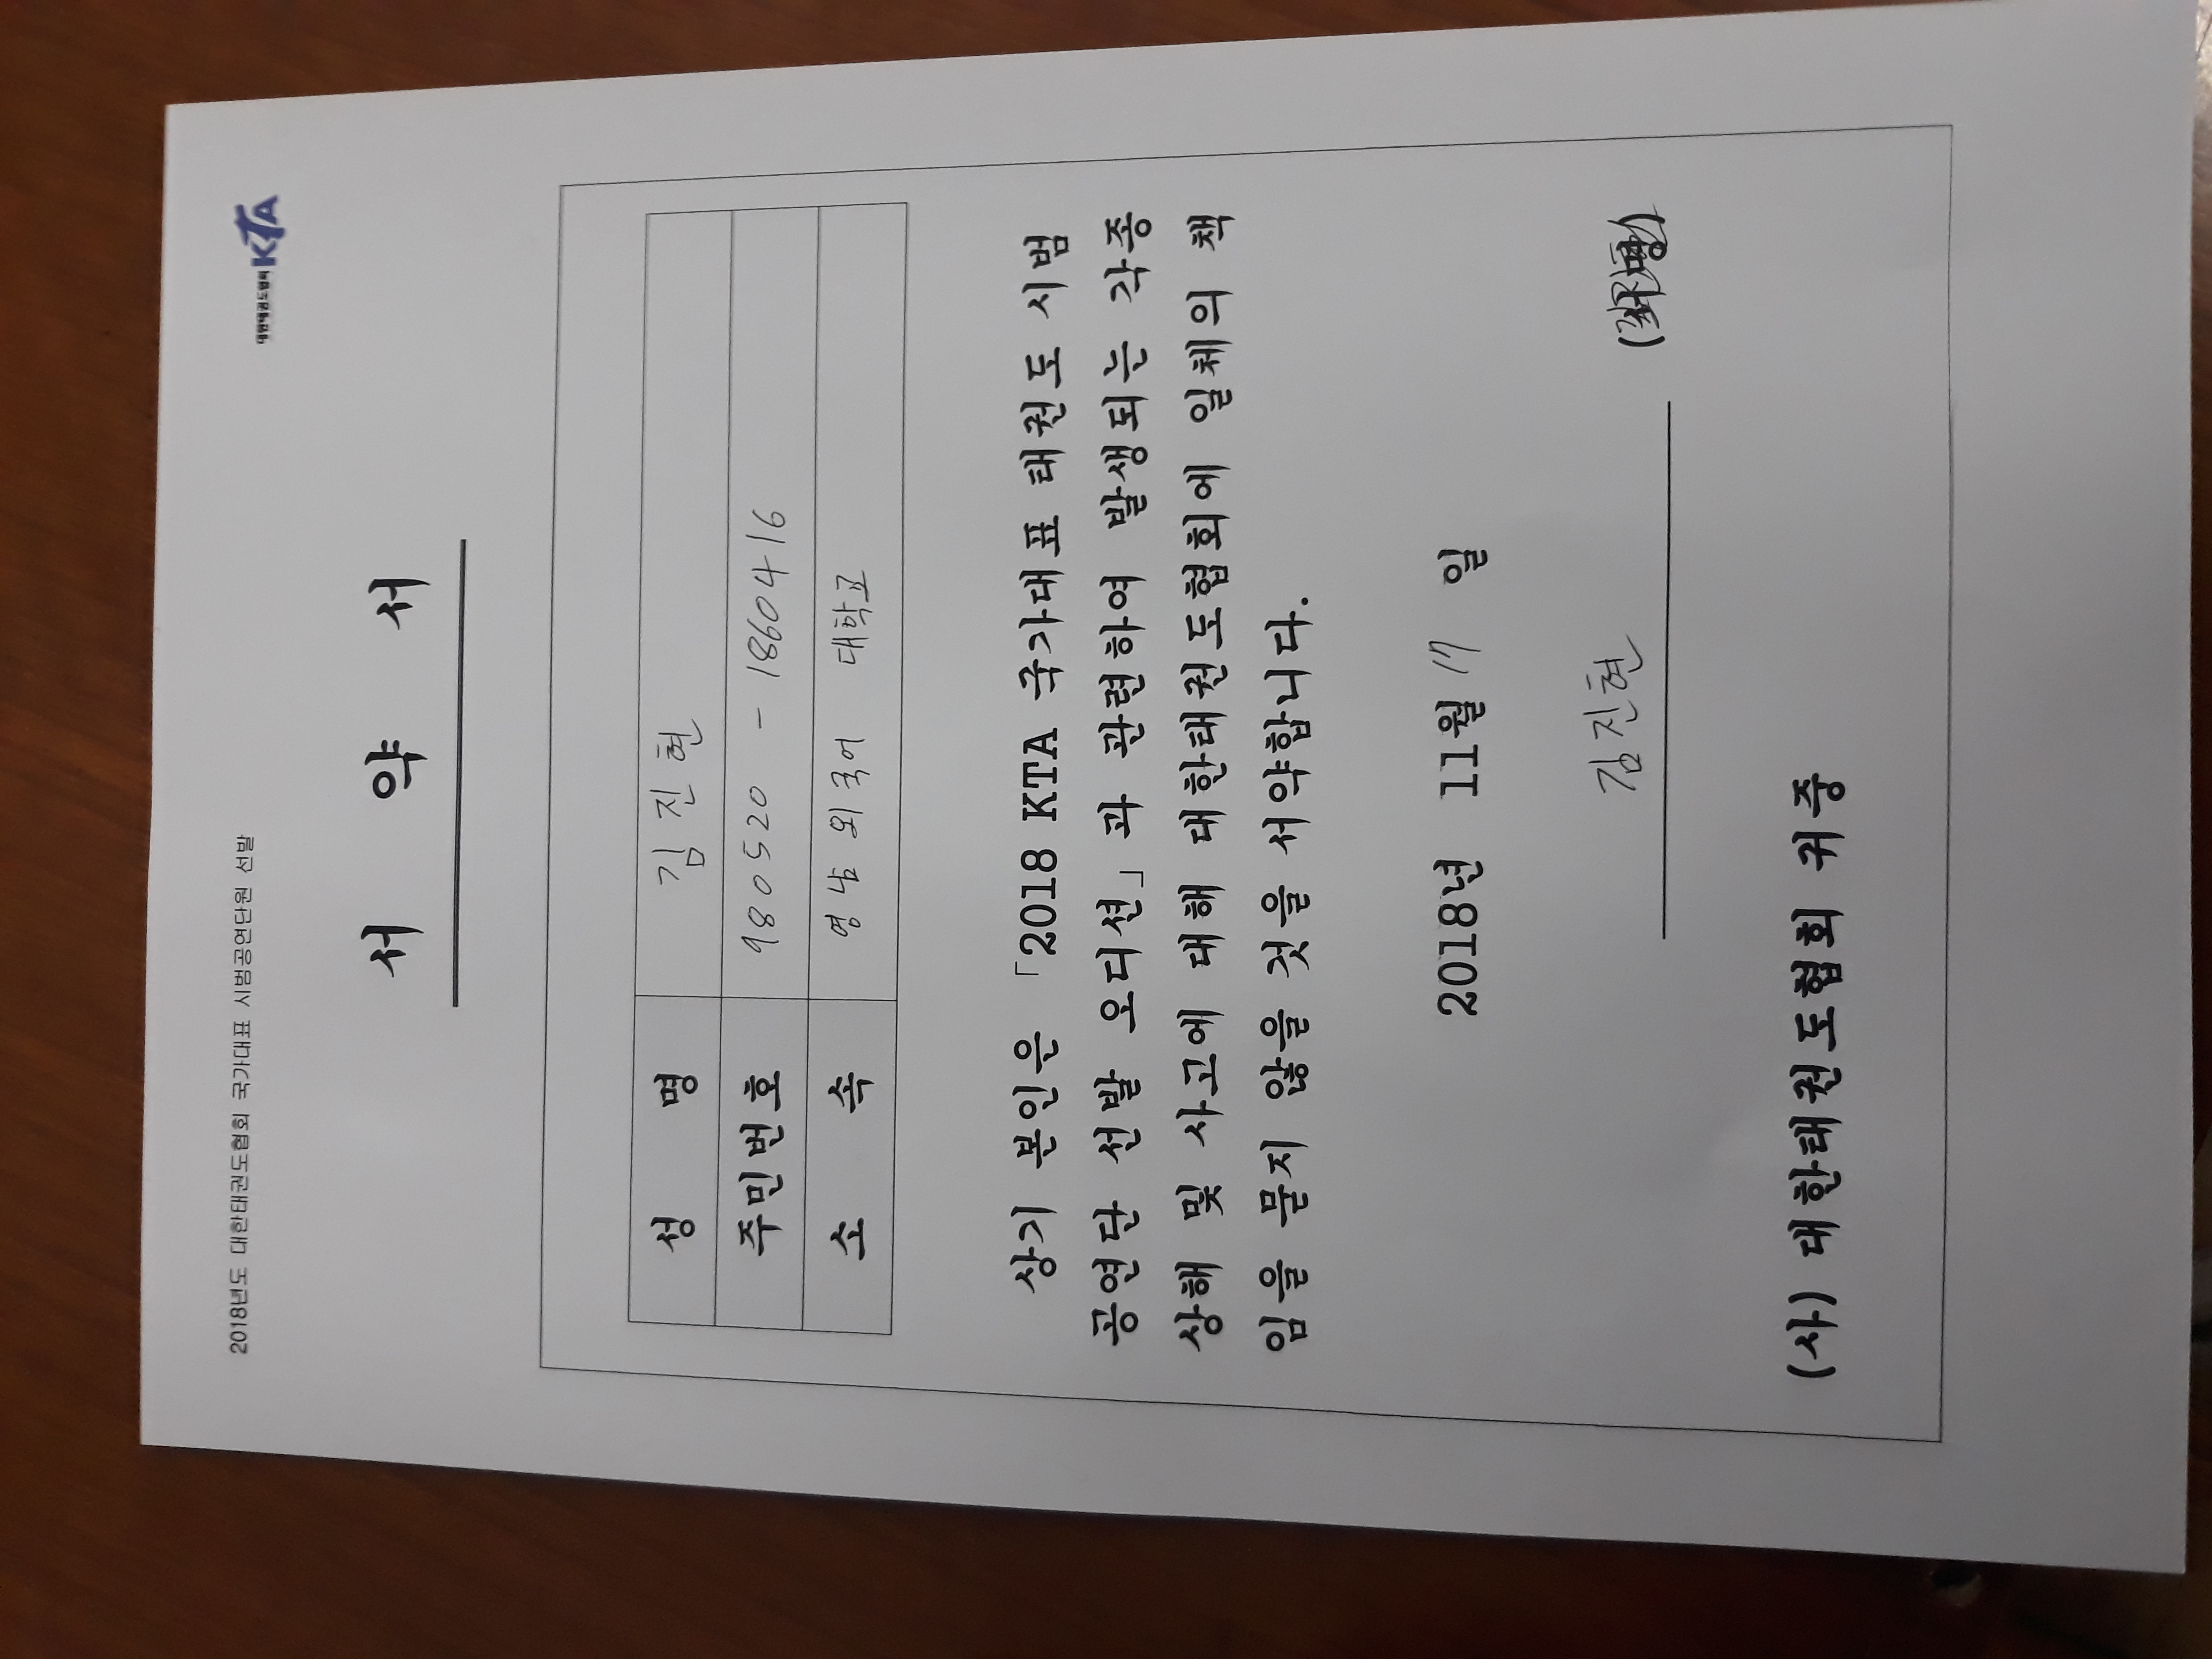 2018년도 대한태권도협회 국가대표 시범공연단원 선발
대한태권도협회 KTA
서 약 서
성 명 김진현
주민번호 980520 - 1860416
소 속 영남외국어 대학교
상기 본인은 「2018 KTA 국가대표 태권도 시범
공연단 선발 오디션」과 관련하여 발생되는 각종
상해 및 사고에 대해 대한태권도협회에 일체의 책
임을 묻지 않을 것을 서약합니다.
2018년 11월 17 일
김진현 (서명)
(사) 대한태권도협회 귀중